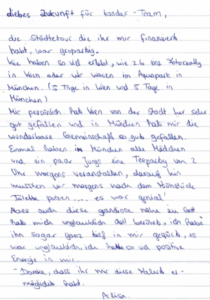 Liebes Zukunft für Kinder - Team,
die Städtetour die ihr mir finanziert
habt, war gespartig.
Wir haben so viel erlebt, wie z.b ins
in Wien oder wir waren im Aquapark in
München. (5 Tage in Wien und 5 Tage in
München)
Mir persönlich hat Wien von der Stadt her sehr
gut gefallen und in München hat mir die
Gemeinschaft so gut gefallen.
Einmal haben in München alle Mädchen
und ein paar Jungs eine Teeparty von 2
Uhr morgens veranstaltet, darauf hin
mussten wir morgens nach dem Frühstück
Toilette putzen .... es war genial!
Aber auch diese grandiose Nähe zu Gott
hat mich unglaublich doll berührt, ich habe
ihn sogar ganz tief in mir gespürt, es
war unglaublich, ich hatte so viel positive
Energie in mir.
- Danke, dass ihr mir diese Freizeit er-
möglicht habt.